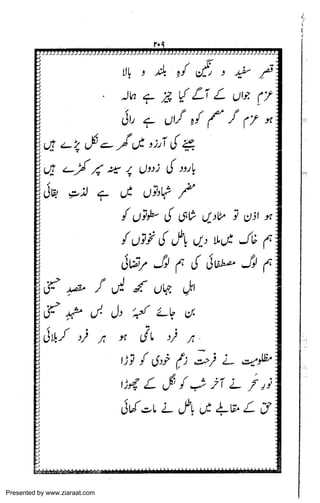 ۲۰۹
قصر سفید و رنگین کوہ بلند و بالا
عزم جواں کے آگے کیا چیز ہے ہمالہ
ہو عزم گر مصمم کوہ گراں ہے رائی
جینے کی آرزو میں گھر سے نکل پڑے ہیں
بارود کی زدوں پر سینہ سپر کھڑے ہیں
مضمر شہادتوں میں ہے لذت بقائی
ہو اذن تو مٹادیں شاہی کی سطوتوں کو
ہم خاک میں ملا دیں باطل کی نخوتوں کو
ہم لوگ مصطفائی کی ہم لوگ مرتضائی
اہل جہاں سمجھ لیں گر مقصد حسینی
بن جائے کعبۂ دل بس مشہد حسینی
ہر فرد ماتمی ہو ہر فرد کربلائی
مظلومیت نے فرحت زعم خودی کو توڑا
نور سحر نے آخر شب کو نگل کے چھوڑا
حق کے مقابلے میں باطل نے مات کھائی
Presented by www.ziaraat.com